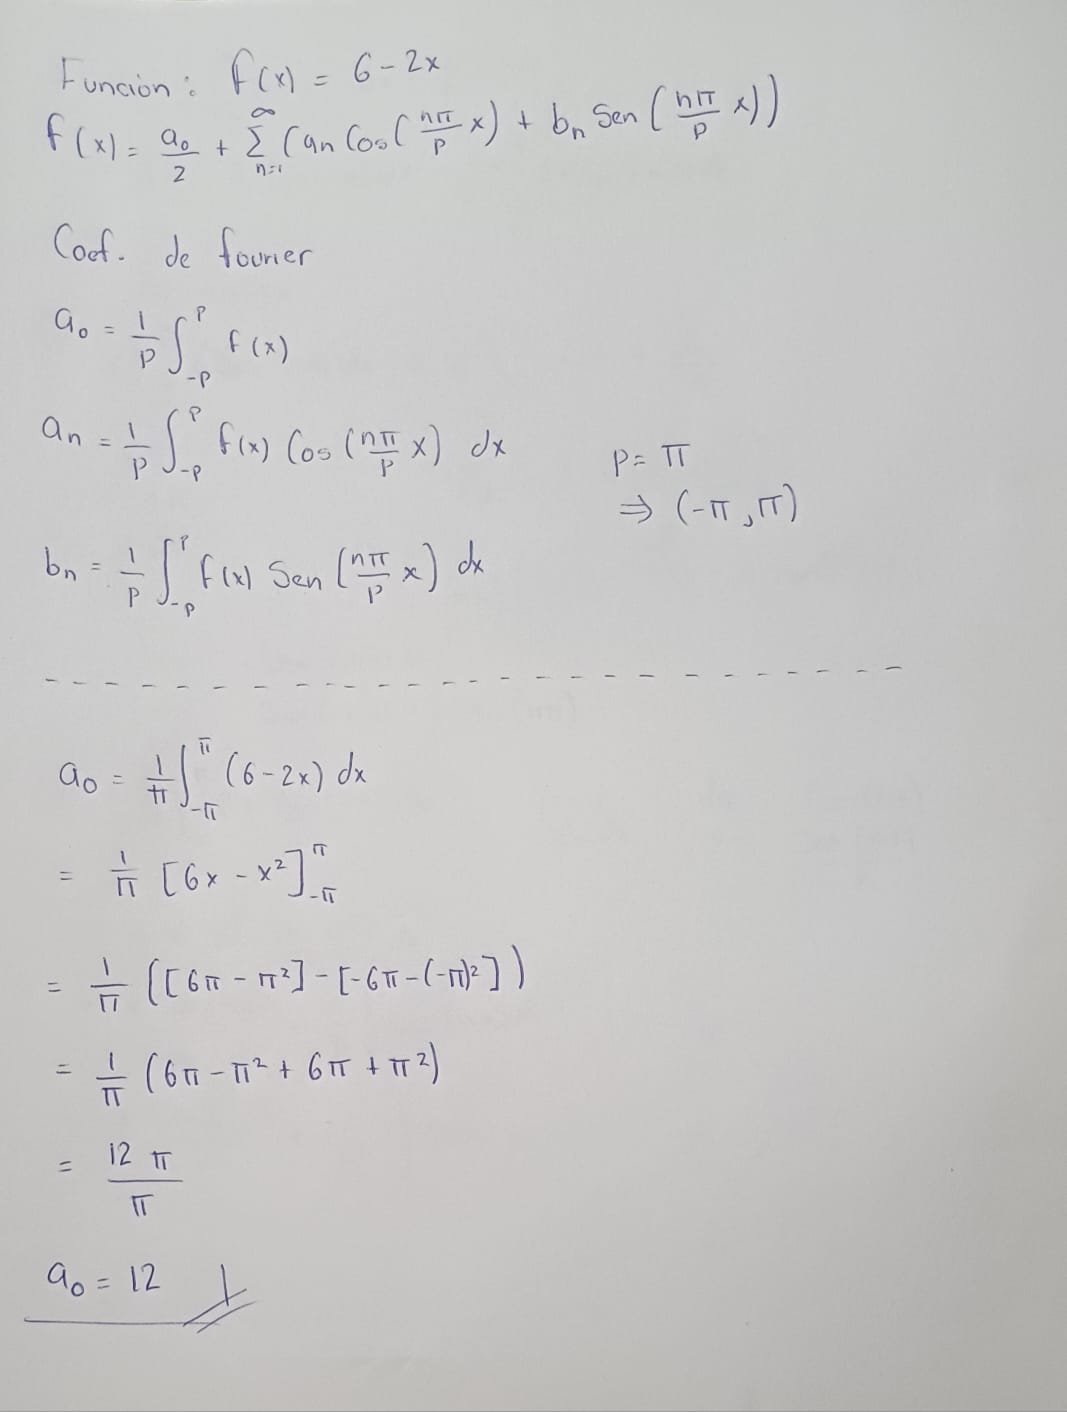 Función: f(x) = 6-2x
f(x) = a₀/2 + ∑_{n=1}^{∞} (an Cos(nπ/p x) + bn Sen(nπ/p x))
Coef. de fourier
a₀ = 1/p ∫_{-p}^{p} f(x)
an = 1/p ∫_{-p}^{p} f(x) Cos(nπ/p x) dx
p = π
⇒ (-π, π)
bn = 1/p ∫_{-p}^{p} f(x) Sen(nπ/p x) dx
a₀ = 1/π ∫_{-π}^{π} (6-2x) dx
= 1/π [6x - x²]_{-π}^{π}
= 1/π ([6π - π²] - [-6π - (-π)²])
= 1/π (6π - π² + 6π + π²)
= 12π/π
a₀ = 12